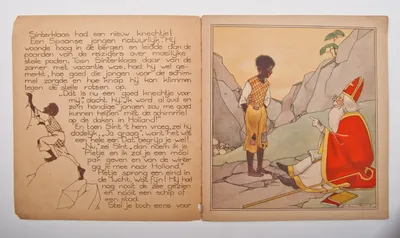 Sinterklaas had een nieuw knechtje!
Een Spaanse jongen natuurlijk. Hij
woonde hoog in de bergen en leidde daar de
paarden van de reizigers over moeilijke
steile paden. Toen Sinterklaas daar van de
zomer met vacantie was, had hij wel ge-
merkt, hoe goed die jongen voor de schim-
mel zorgde en hoe knap hij kon klimmen
tegen de steile rotsen op.
„Dat is nu een goed knechtje voor
mij", dacht hij. „Ik word al oud en
zo'n handige jongen zou me goed
kunnen helpen met de schimmel
op de daken in Holland."
En toen Sint 't hem vroeg, zei hij
dadelijk: „Ja graag", want het was
een hele eer. Dat begrijp je wel!
„Nu", zei Sint, „dan noem ik je
Pietje en ik zal je een mooi
pak geven en van de winter
ga je mee naar Holland."
Pietje sprong een eind in
de lucht. Wat fijn! Hij had
nog nooit de zee gezien
en nooit een schip of
een stad.
Stel je toch eens voor